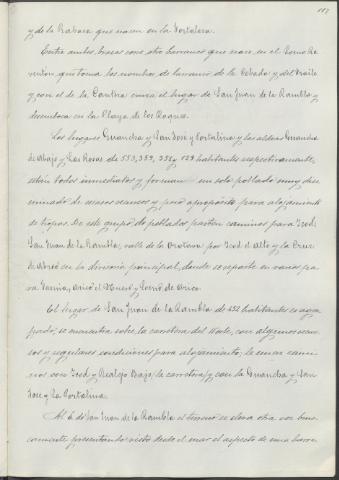 117
y de la Rabaca que nacen en la Fortaleza.
Entre ambos brazos corre otro barranco que nace en el Lomo Re
ventón, que toma los nombres de barranco de la Cebada y del Fraile
y con el de la Cantha cruza el lugar de San Juan de la Rambla y
desemboca en la Playa de los Roques.
Los lugares Guancha y San José y Portalina y las aldeas Guancha
de Abajo y las Rosas de 553, 359, 334 y 129 habitantes respectivamente,
están todos inmediatos y forman un solo poblado muy dise
minado de casas cómodas y poco apropósito para alojamiento
de tropas. De este grupo de poblados parten caminos para Icod,
San Juan de la Rambla, valle de la Orotava por Icod el Alto y la Cruz
de en la divisoria principal, donde se reparte en varios pa
ra Arico el Nuevo y Lomo de Arico.
El lugar de San Juan de la Rambla de 492 habitantes es agru
pado, se encuentra sobre la carretera del Norte, con algunos recur
sos y regulares condiciones para alojamiento, le cruzan cami
nos con Icod y Realejo Bajo, la carretera y con la Guancha y San
José y la Portalina.
Al E. de San Juan de la Rambla el terreno se eleva otra vez brus
camente presentando visto desde el mar el aspecto de una barre